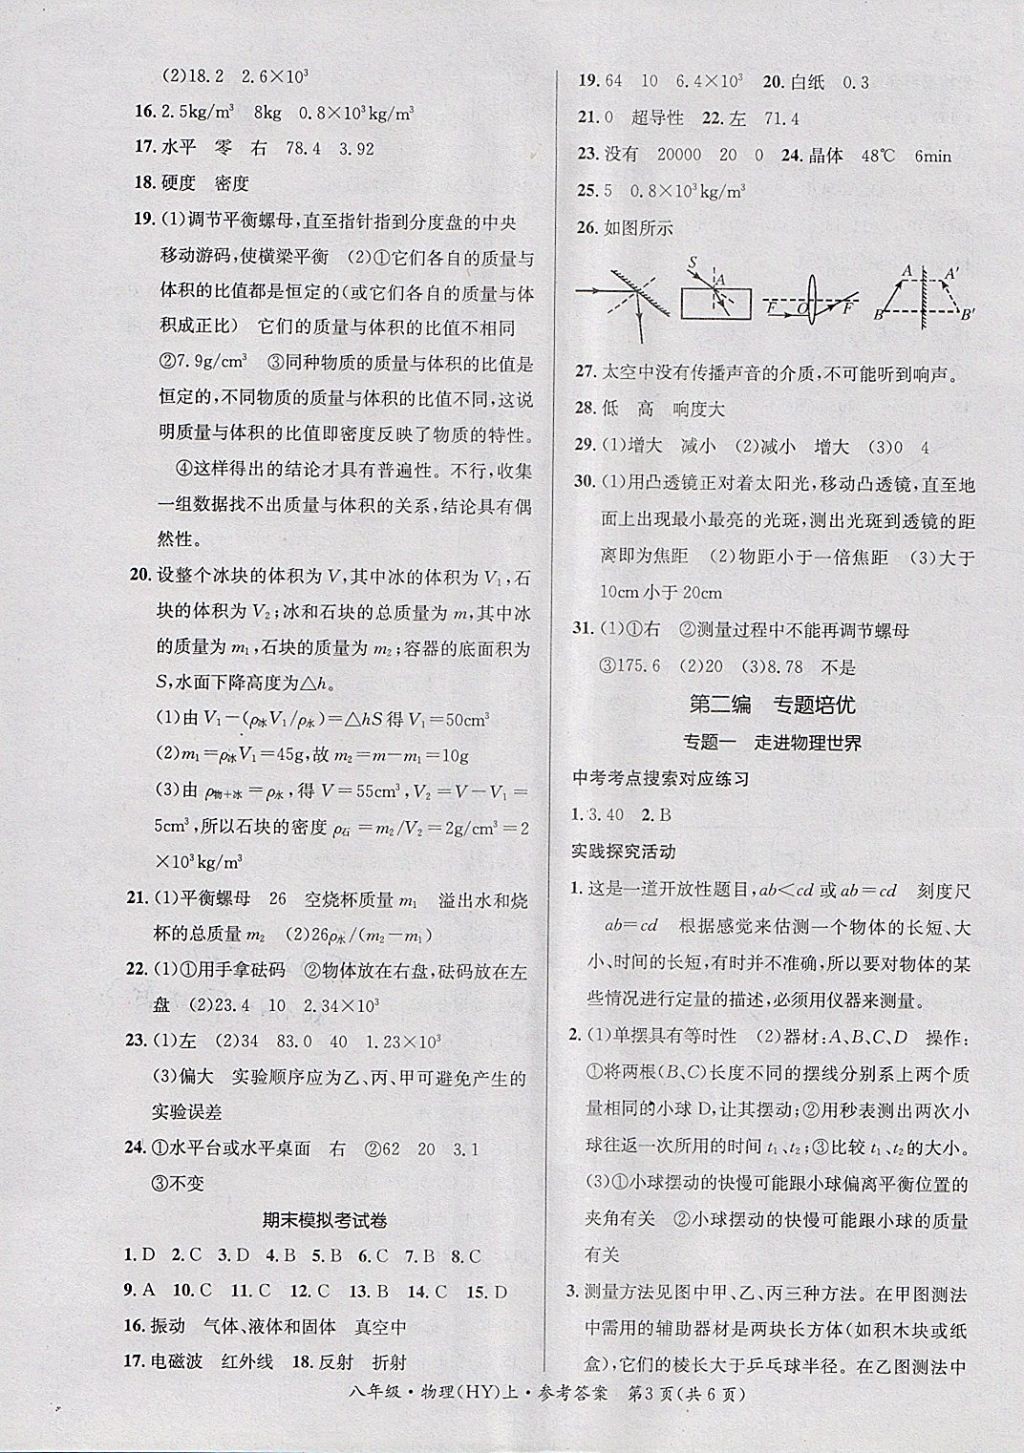 (2)18.2 2.6×10³
16. 2.5kg/m³ 8kg 0.8×10³kg/m³
17. 水平 零 右 78.4 3.92
18. 硬度 密度
19. (1)调节平衡螺母,直至指针指到分度盘的中央
移动游码,使横梁平衡 (2)①它们各自的质量与
体积的比值都是恒定的(或它们各自的质量与体
积成正比) 它们的质量与体积的比值不相同
②7.9g/cm³ ③同种物质的质量与体积的比值是
恒定的,不同物质的质量与体积的比值不同,这说
明质量与体积的比值即密度反映了物质的特性。
④这样得出的结论才具有普遍性。不行,收集
一组数据找不出质量与体积的关系,具有偶
然性。
20. 设整个冰块的体积为V,其中冰的体积为V₁,石
块的体积为V₂;冰和石块的总质量为m,其中冰
的质量为m₁,石块的质量为m₂;容器的底面积为
S,水面下降高度为△h。
(1)由V₁-(ρ冰V₁/ρ水)=△hS得V₁=50cm³
(2)m₁=ρ冰V₁=45g,故m₂=m-m₁=10g
(3)由ρ物+冰=ρ水,得V=55cm³,V₂=V-V₁=
5cm³,所以石块的密度ρ石=m₂/V₂=2g/cm³=2
×10³kg/m³
21. (1)平衡螺母 26 空烧杯质量m₁ 溢出水和烧
杯的总质量m₂ (2)26ρ水/(m₂-m₁)
22. (1)①用手拿砝码 ②物体放在右盘,砝码放在左
盘 (2)23.4 10 2.34×10³
23. (1)左 (2)34 83.0 40 1.23×10³
(3)偏大 实验顺序应为乙、丙、甲可避免产生的
实验误差
24. ①水平台或水平桌面 右 ②62 20 3.1
③不变
期末模拟考试卷
1. D 2. C 3. D 4. B 5. B 6. C 7. B 8. C
9. A 10. C 11. C 12. C 13. B 14. C 15. D
16. 振动 气体、液体和固体 真空中
17. 电磁波 红外线 18. 反射 折射
19. 64 10 6.4×10³ 20. 白纸 0.3
21. 0 超导性 22. 左 71.4
23. 没有 20000 20 0 24. 晶体 48℃ 6min
25. 5 0.8×10³kg/m³
26. 如图所示
S A F O F A A′ B B′
27. 太空中没有传播声音的介质,不可能听到响声。
28. 低 高 响度大
29. (1)增大 减小 (2)减小 增大 (3)0 4
30. (1)用凸透镜正对着太阳光,移动凸透镜,直至地
面上出现最小最亮的光斑,测出光斑到透镜的距
离即为焦距 (2)物距小于一倍焦距 (3)大于
10cm小于20cm
31. (1)①右 ②测量过程中不能再调节螺母
③175.6 (2)20 (3)8.78 不是
第二编 专题培优
专题一 走进物理世界
中考考点搜索对应练习
1. 3.40 2. B
实践探究活动
1. 这是一道开放性题目,ab<cd或ab=cd 刻度尺
ab=cd 根据感觉来估测一个物体的长短、大
小、时间的长短,有时并不准确,所以要对物体的某
些情况进行定量的描述,必须用仪器来测量。
2. (1)单摆具有等时性 (2)器材:A、B、C、D 操作:
①将两根(B、C)长度不同的摆线分别系上两个质
量相同的小球D,让其摆动;②用秒表测出两次小
球往返一次所用的时间t₁、t₂;③比较t₁、t₂的大小。
(3)①小球摆动的快慢可能跟小球偏离平衡位置的
夹角有关 ②小球摆动的快慢可能跟小球的质量
有关
3. 测量方法见图中甲、乙、丙三种方法。在甲图测法
中需用的辅助器材是两块长方体(如积木块或纸
盒),它们的棱长大于乒乓球半径。在乙图测法中
八年级·物理(HY)上·参考答案 第3页(共6页)